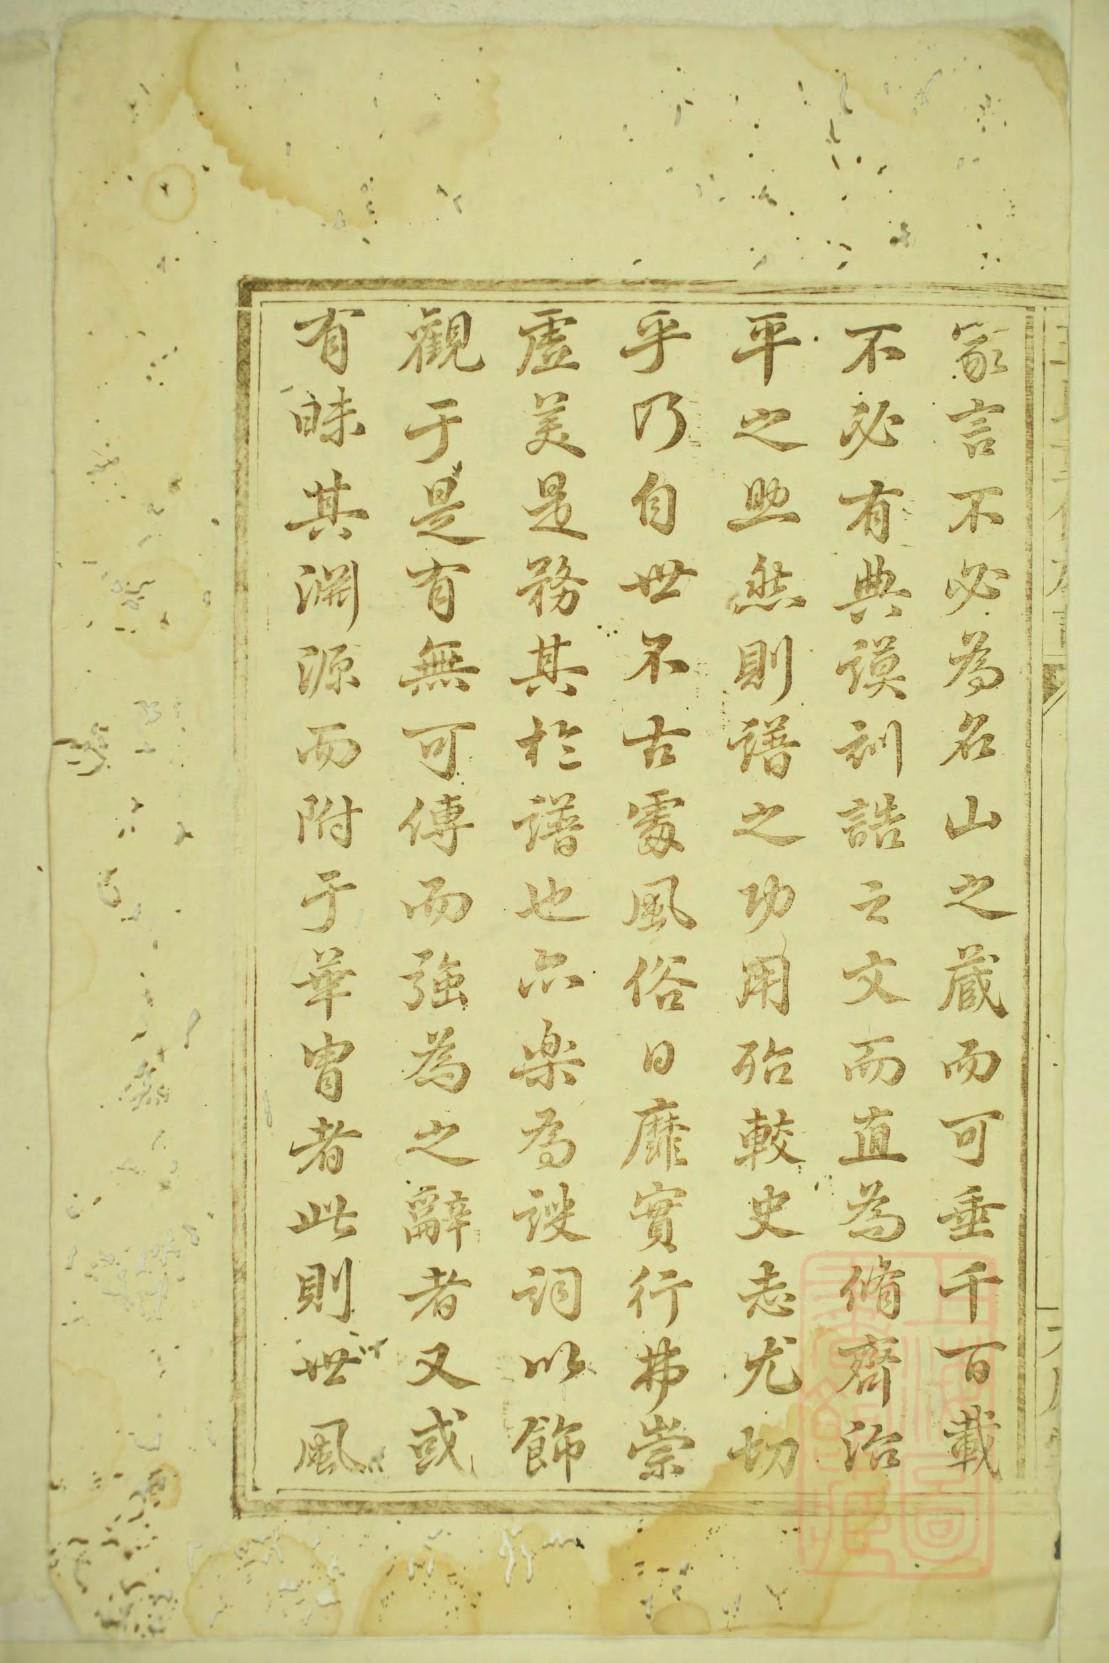 家言不必為名山之蔵而可垂千百載
不必有典謨訓誥之文而直為脩齊治
平之助然則譜之功用殆較史志尤切
乎乃自世不古處風俗日靡實行弗崇
虛美是務其於譜也亦樂為謏詞以飾
觀于是有無可傳而強為之辭者又或
有昧其淵源而附于華胄者此則世風